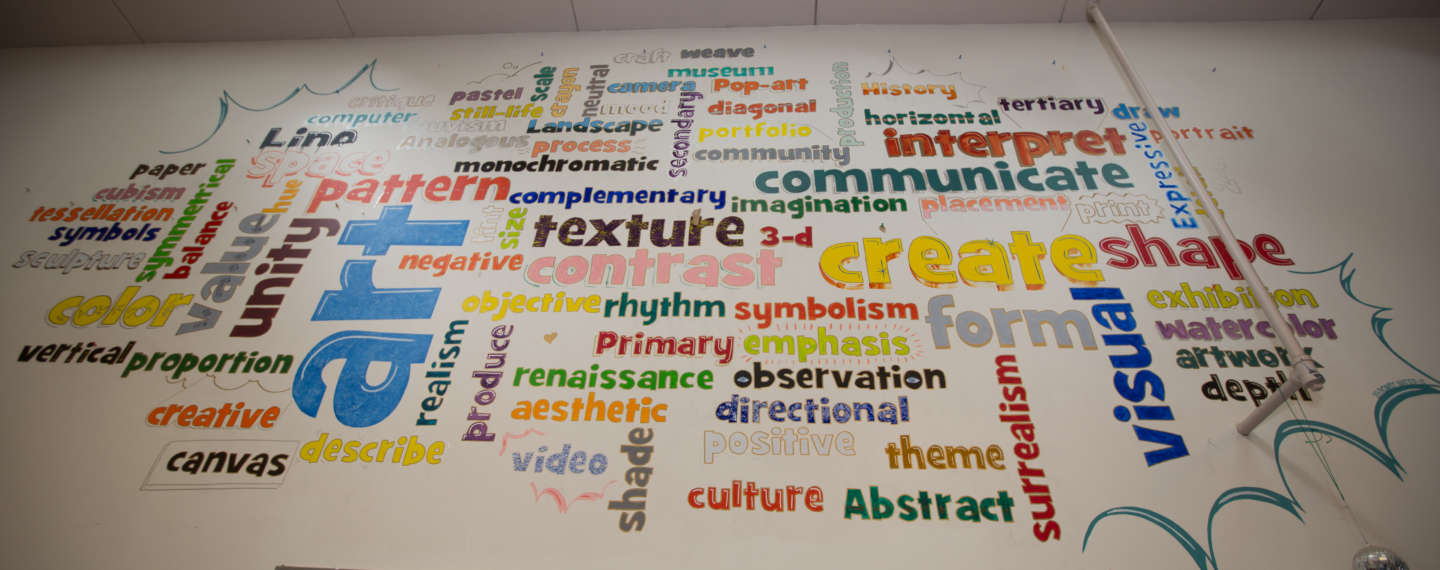 craft weave
museum
critique pastel still-life Scale crayon neutral camera mood
Pop-art
diagonal
production
History
tertiary
draw
computer
Line
Analogous
Landscape
process
secondary
portfolio
community
horizontal
interpret
Expressive
portrait
paper
cubism
tessellation
symbols
sculpture
symmetrical
balance
space
hue
pattern
monochromatic
complementary
communicate
imagination
placement
print
value
unity
art
size
texture
3-d
negative
contrast
create
shape
color
objective
rhythm
symbolism
form
visual
exhibition
watercolor
artwork
depth
vertical
proportion
realism
produce
Primary
emphasis
renaissance
observation
creative
aesthetic
directional
surrealism
canvas
describe
video
shade
positive
theme
culture
Abstract